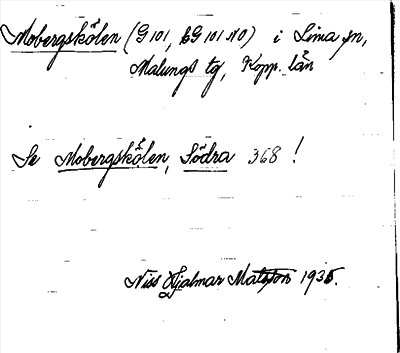 Mobergskölen (G 101, bG 101 NO) i Lima sn,
Malungs tg, Kopp. län
Se Mobergskölen, Södra 368!
Niss Hjalmar Matsson 1935.